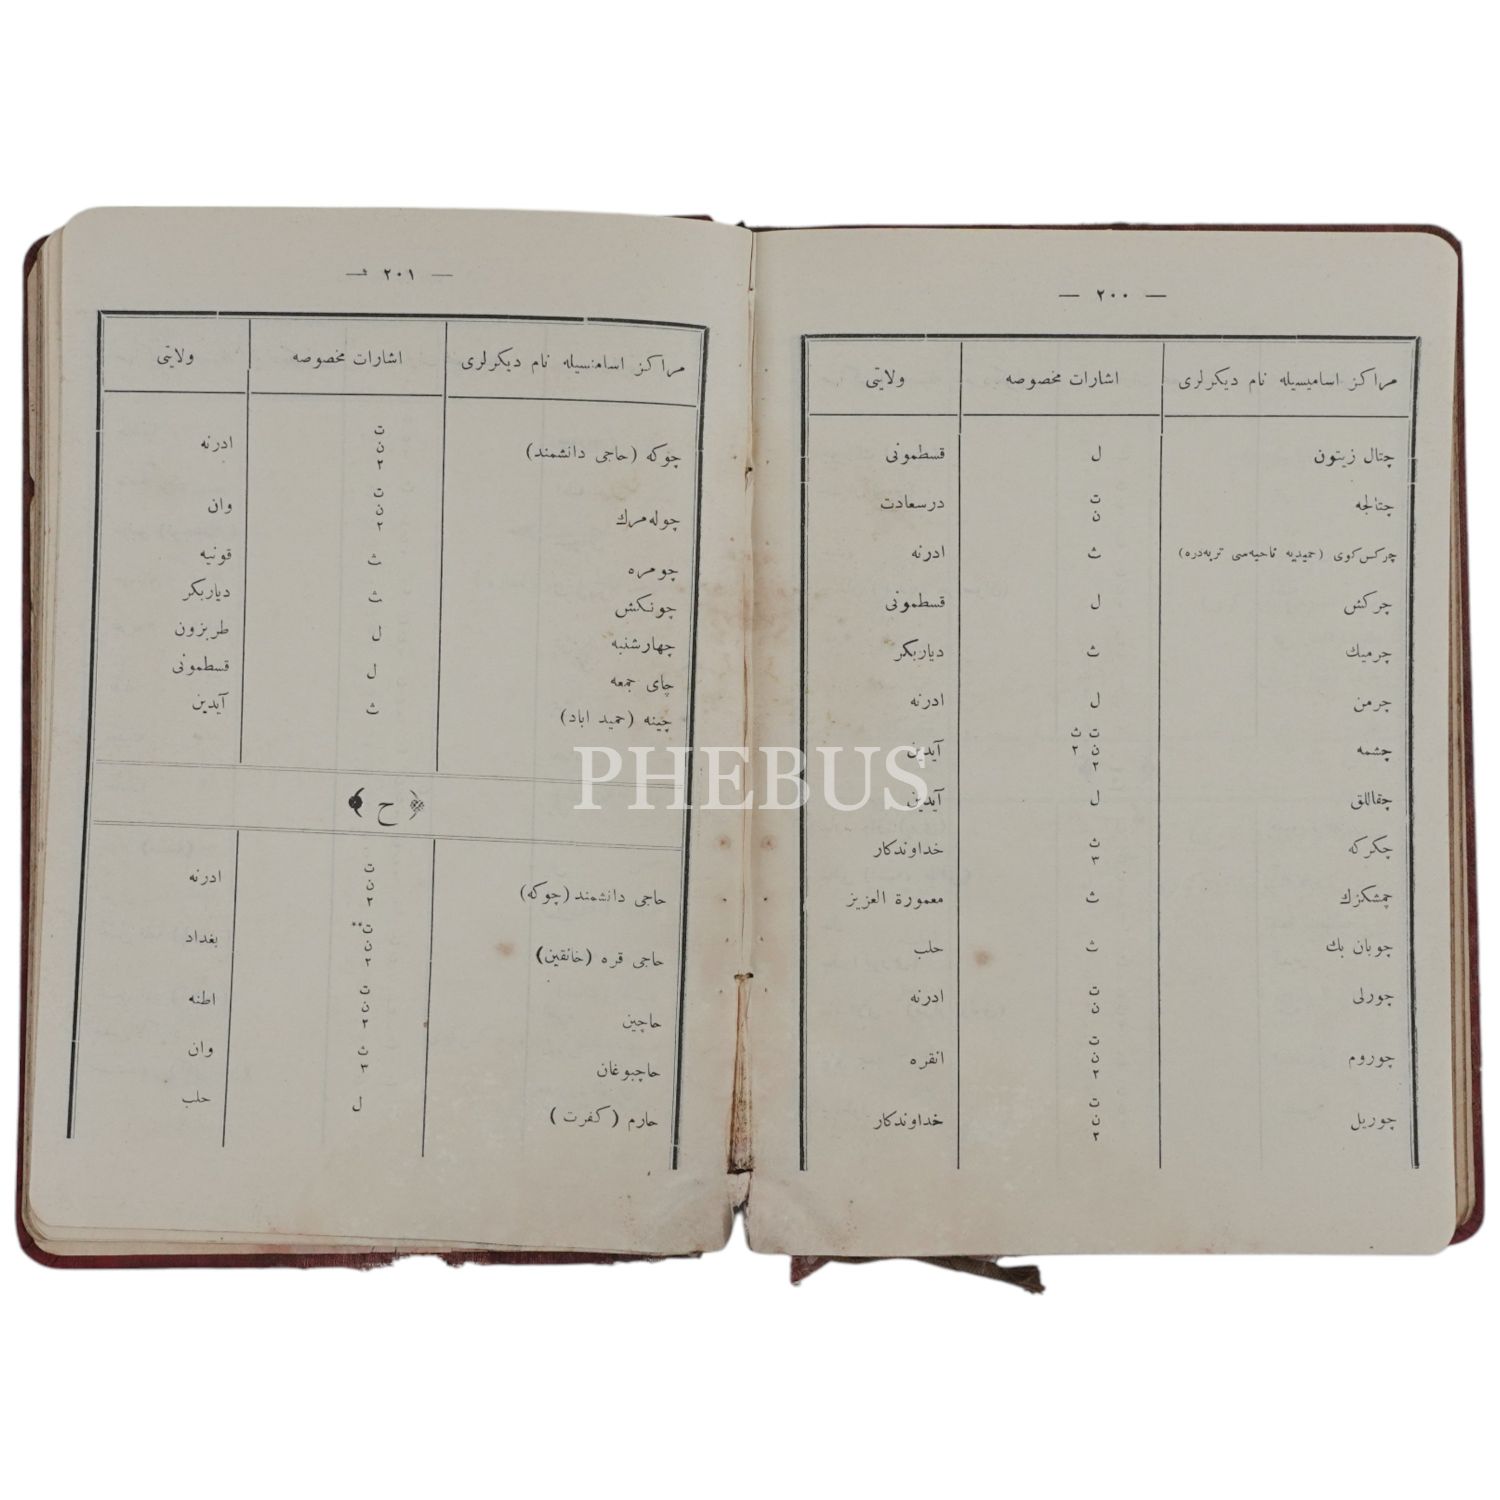 — ٢٠٠ —
مراكز اساميسيله نام ديكرلرى اشارات مخصوصه ولايتى
چتال زيتون ل قسطمونى
چتالجه ت ن درسعادت
چركس كوى (حميديه ناحيه‌سى تربه‌دره) ث ادرنه
چركش ل قسطمونى
چرميك ث دياربكر
چرمن ل ادرنه
چشمه ت ن ٢ ث ٢ آيدين
چقاللق ل آيدين
چكركه ث ٣ خداوندكار
چمشكزك ث معمورة العزيز
چوبان بك ث حلب
چورلى ت ن ادرنه
چوروم ت ن ٢ انقره
چوريل ت ن ٢ خداوندكار
— ٢٠١ —
مراكز اساميسيله نام ديكرلرى اشارات مخصوصه ولايتى
چوكه (حاجى دانشمند) ت ن ٢ ادرنه
چوله‌مرك ت ن ٢ وان
چومره ث قونيه
چونكش ث دياربكر
چهارشنبه ل طربزون
چاى جمعه ل قسطمونى
چينه (حميد اباد) ث آيدين
﴿ ح ﴾
حاجى دانشمند (چوكه) ت ن ٢ ادرنه
حاجى قره (خانقين) ت** ن ٢ بغداد
حاچين ت ن ٢ اطنه
حاجبوغان ث ٣ وان
حارم (كفرت) ل حلب
PHEBUS